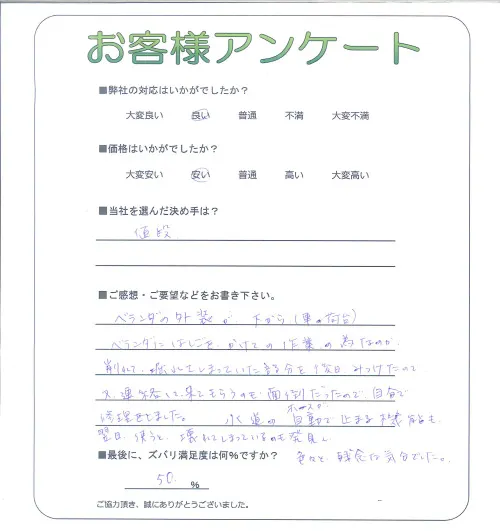 お客様アンケート
■弊社の対応はいかがでしたか?
大変良い 良い 普通 不満 大変不満
■価格はいかがでしたか?
大変安い 安い 普通 高い 大変高い
■当社を選んだ決め手は?
値段
■ご感想・ご要望などをお書き下さい。
ベランダの外装が 下から(車の荷台)
ベランダにはしごを かけての作業の為なのか
削れて、 しまっていた部分を 後日 みつけたので
又、連絡して来てもらうのも 面倒だったので、自分で
修理をしました。 水道の ホースが 自動で止まる
翌日、使うと、壊れてしまっているのも発見し
色々と、残念な気分でした。
■最後に、ズバリ満足度は何%ですか?
50. %
ご協力頂き、誠にありがとうございました。